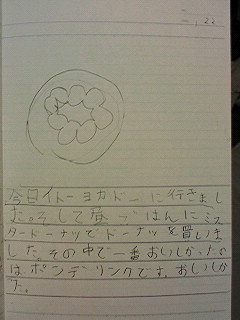 今日イトーヨカドーに行きまし
た。そして昼ごはんにミス
タードーナツでドーナツを買いま
した。その中で一番おいしかったの
はポンデリングです。おいしか
た。